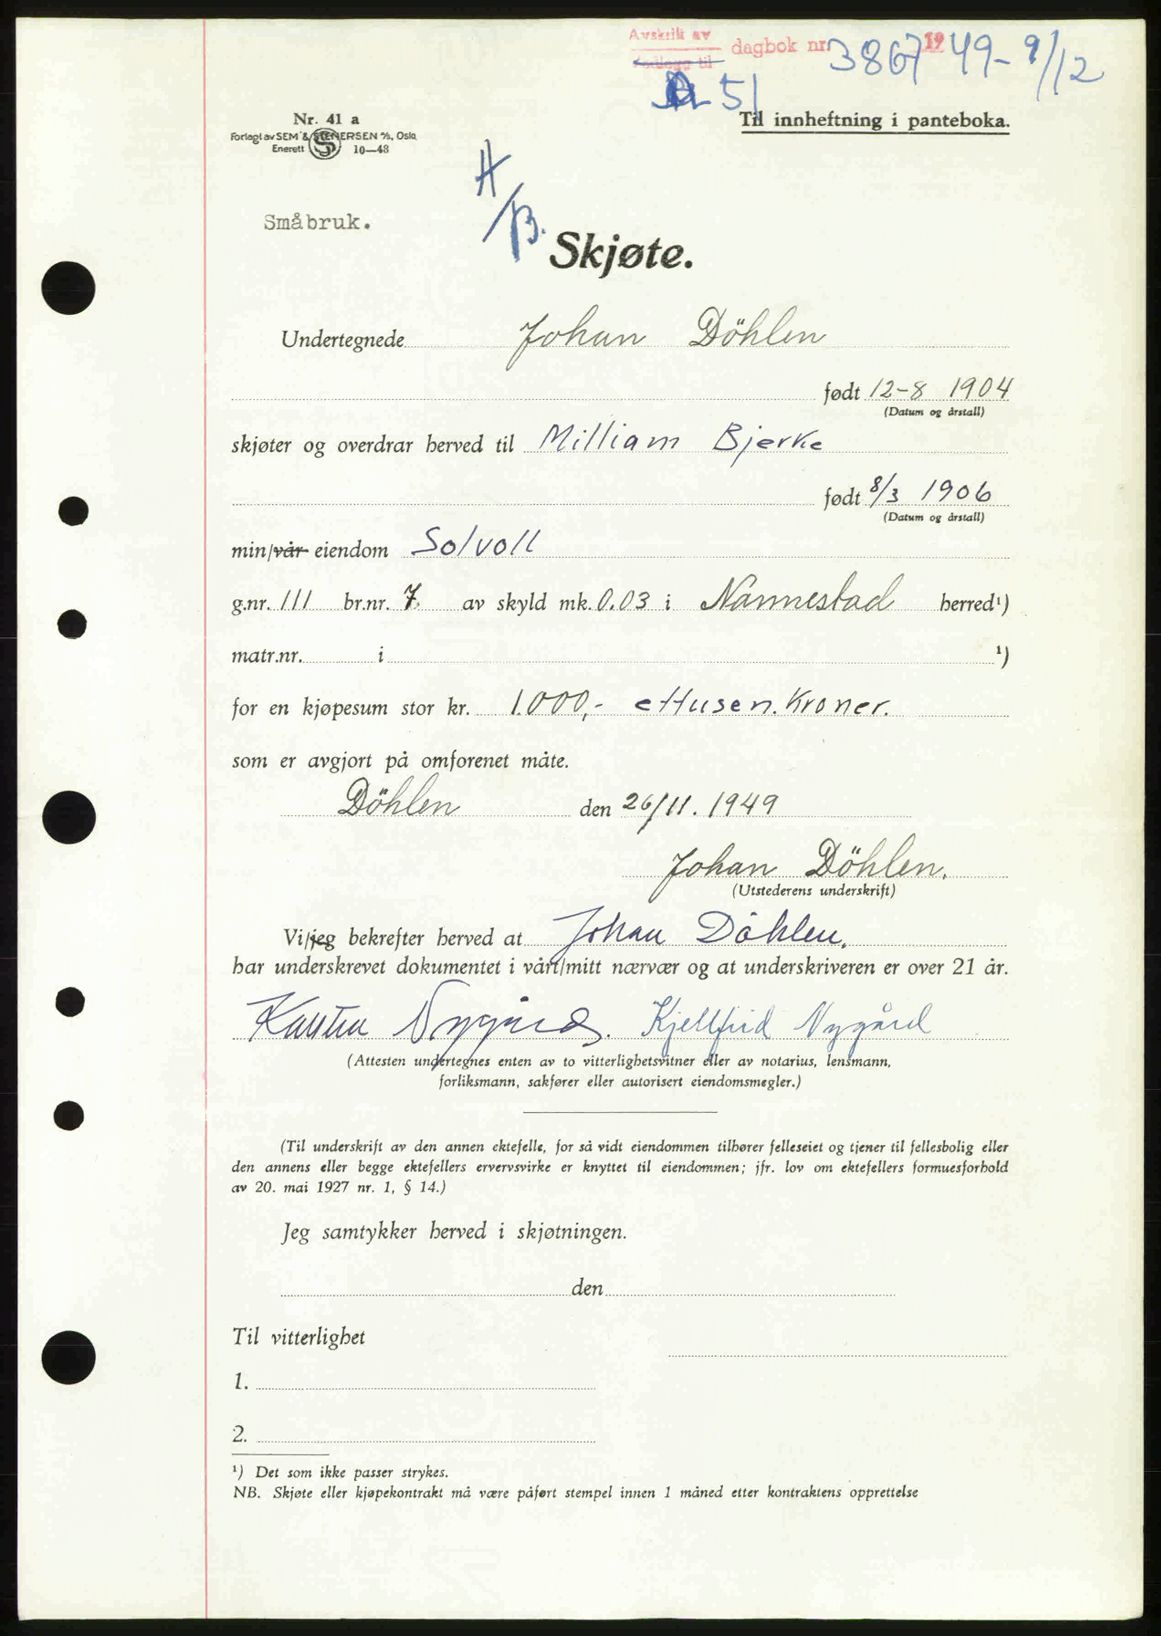 Avskrift av
dagbok nr. 3867 1949 - 9/12
51
Til innheftning i panteboka.
Nr. 41 a
Forlagt av SEM & STENERSEN A/S, Oslo.
Enerett 10—48
H/B.
Småbruk.
Skjøte.
Undertegnede Johan Döhlen
født 12-8 1904
(Datum og årstall)
skjøter og overdrar herved til Milliam Bjerke
født 8/3 1906
(Datum og årstall)
min/vår eiendom Solvoll
g.nr. 111 br.nr. 7 av skyld mk. 0.03 i Nannestad herred¹)
matr.nr. i ¹)
for en kjøpesum stor kr. 1.000,- ettusen. Kroner.
som er avgjort på omforenet måte.
Döhlen den 26/11. 1949
Johan Döhlen.
(Utstederens underskrift)
Vi/jeg bekrefter herved at Johan Döhlen.
har underskrevet dokumentet i vårt/mitt nærvær og at underskriveren er over 21 år.
Nygård. Kjellfrid Nygård
(Attesten undertegnes enten av to vitterlighetsvitner eller av notarius, lensmann,
forliksmann, sakfører eller autorisert eiendomsmegler.)
(Til underskrift av den annen ektefelle, for så vidt eiendommen tilhører felleseiet og tjener til fellesbolig eller
den annens eller begge ektefellers ervervsvirke er knyttet til eiendommen; jfr. lov om ektefellers formuesforhold
av 20. mai 1927 nr. 1, § 14.)
Jeg samtykker herved i skjøtningen.
den
Til vitterlighet
1.
2.
¹) Det som ikke passer strykes.
NB. Skjøte eller kjøpekontrakt må være påført stempel innen 1 måned etter kontraktens opprettelse